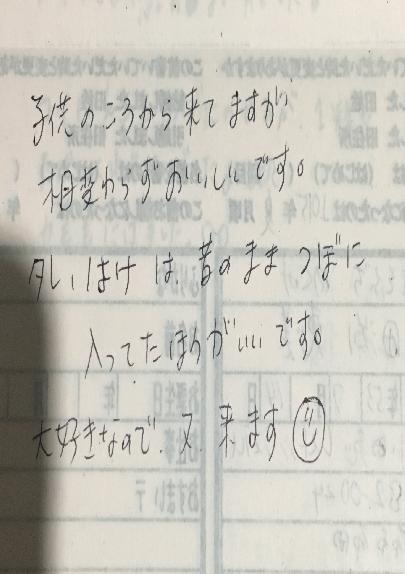 子供のころから来てますが
相変わらずおいしいです。
タレ、はけ は、昔のまま つぼに
入ってたほうがいいです。
大好きなので、又、来ます